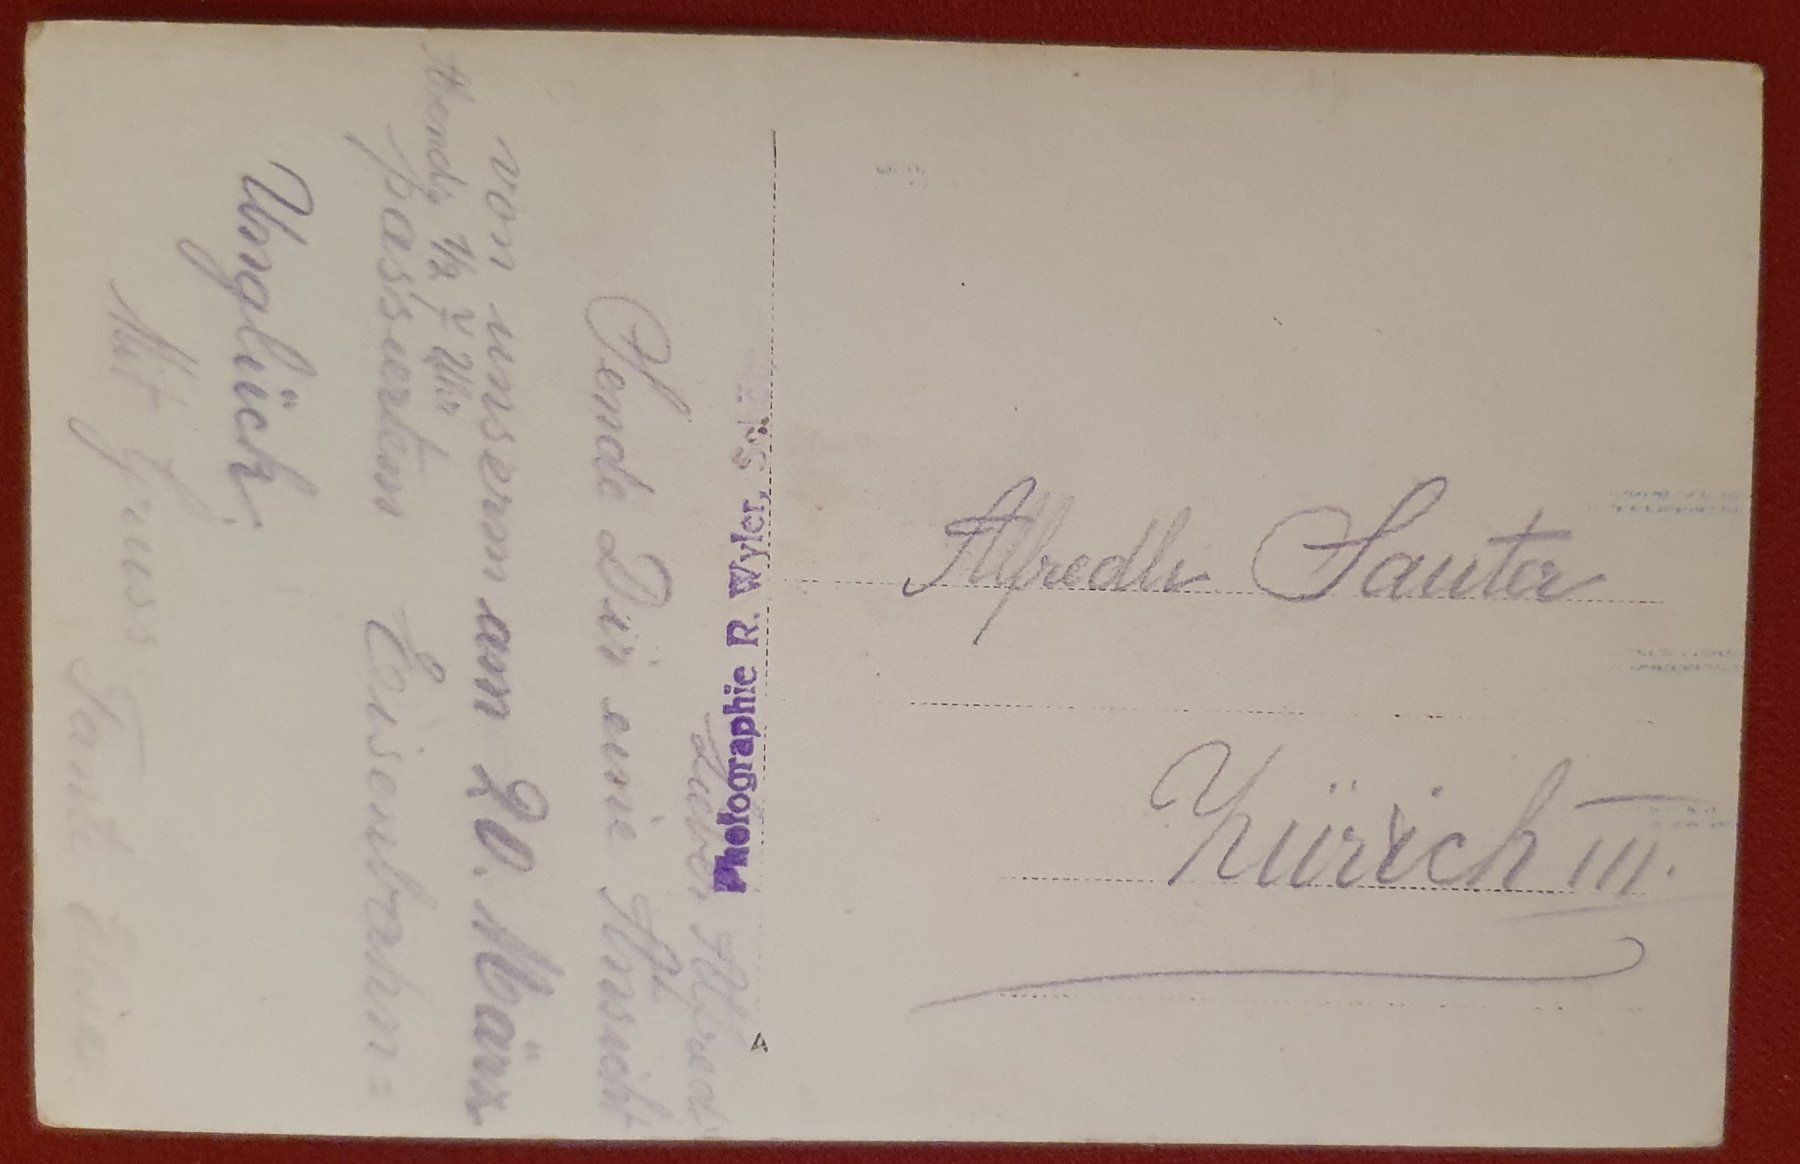 Lieber Alfred
Sende Dir eine Ansicht
von unserm am 20. März
Abends 1/2 7 Uhr
passiertem Eisenbahn=
Unglück.
Mit Gruss Tante Elise
Photographie R. Wyler,
A
Alfredli Sauter
Zürich III.